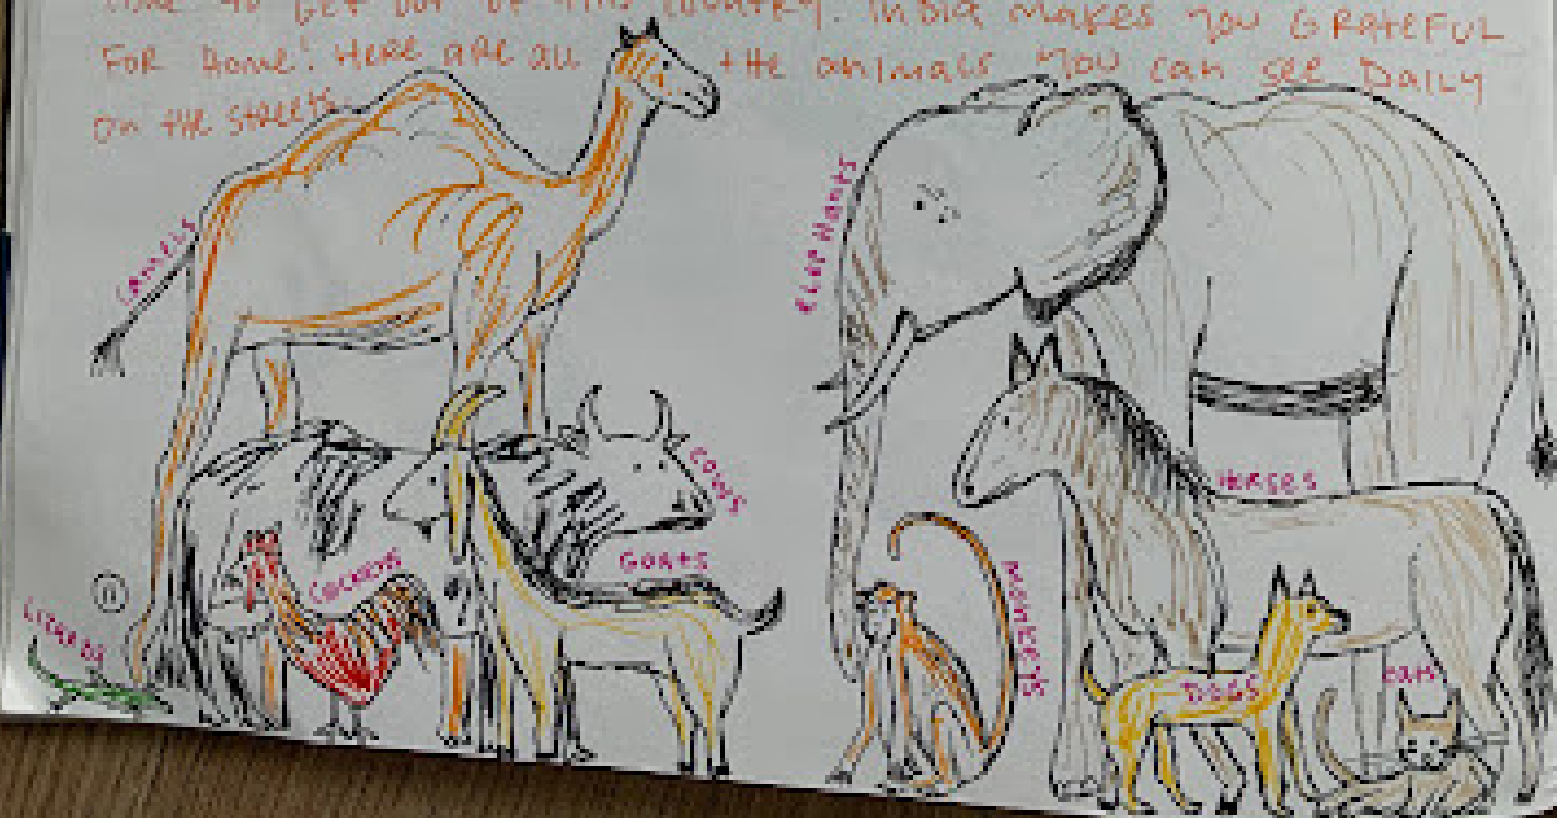 time to get out of this country. India makes you GRATEFUL
FOR Home! Here are all the animals you can see Daily
on the streets.
camels
elephants
cows
Horses
Goats
cockers
monkeys
11
Lizards
DOGS
cats